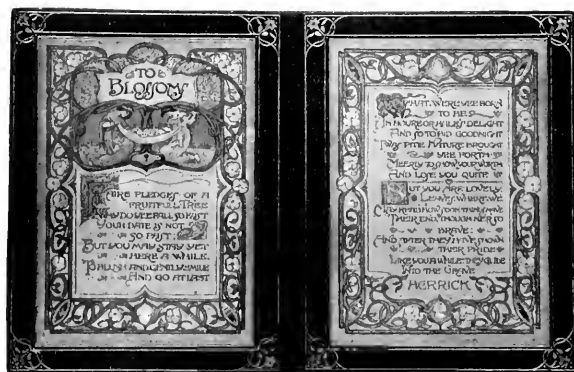 TO
BLOSSOMS
FAIRE PLEDGES OF A
FRUITFULL TREE
WHY DO YEE FALL SO FAST
YOUR DATE IS NOT
SO PAST:
BUT YOU MAY STAY YET
HERE A WHILE,
TO BLUSH AND GENTLY SMILE
AND GO AT LAST
WHAT, WERE YEE BORN
TO BE?
AN HOURE OR HALF'S DELIGHT
AND SO TO BID GOODNIGHT
TWAS PITIE NATURE BROUGHT
YEE FORTH
MEERLY TO SHOW YOUR WORTH
AND LOSE YOU QUITE
BUT YOU ARE LOVELY
LEAVES, WHERE WE
MAY READ HOW SOON THINGS HAVE
THEIR END, THOUGH NER SO
BRAVE:
AND AFTER THEY HAVE SHOWN
THEIR PRIDE
LIKE YOU A WHILE THEY GLIDE
INTO THE GRAVE
HERRICK